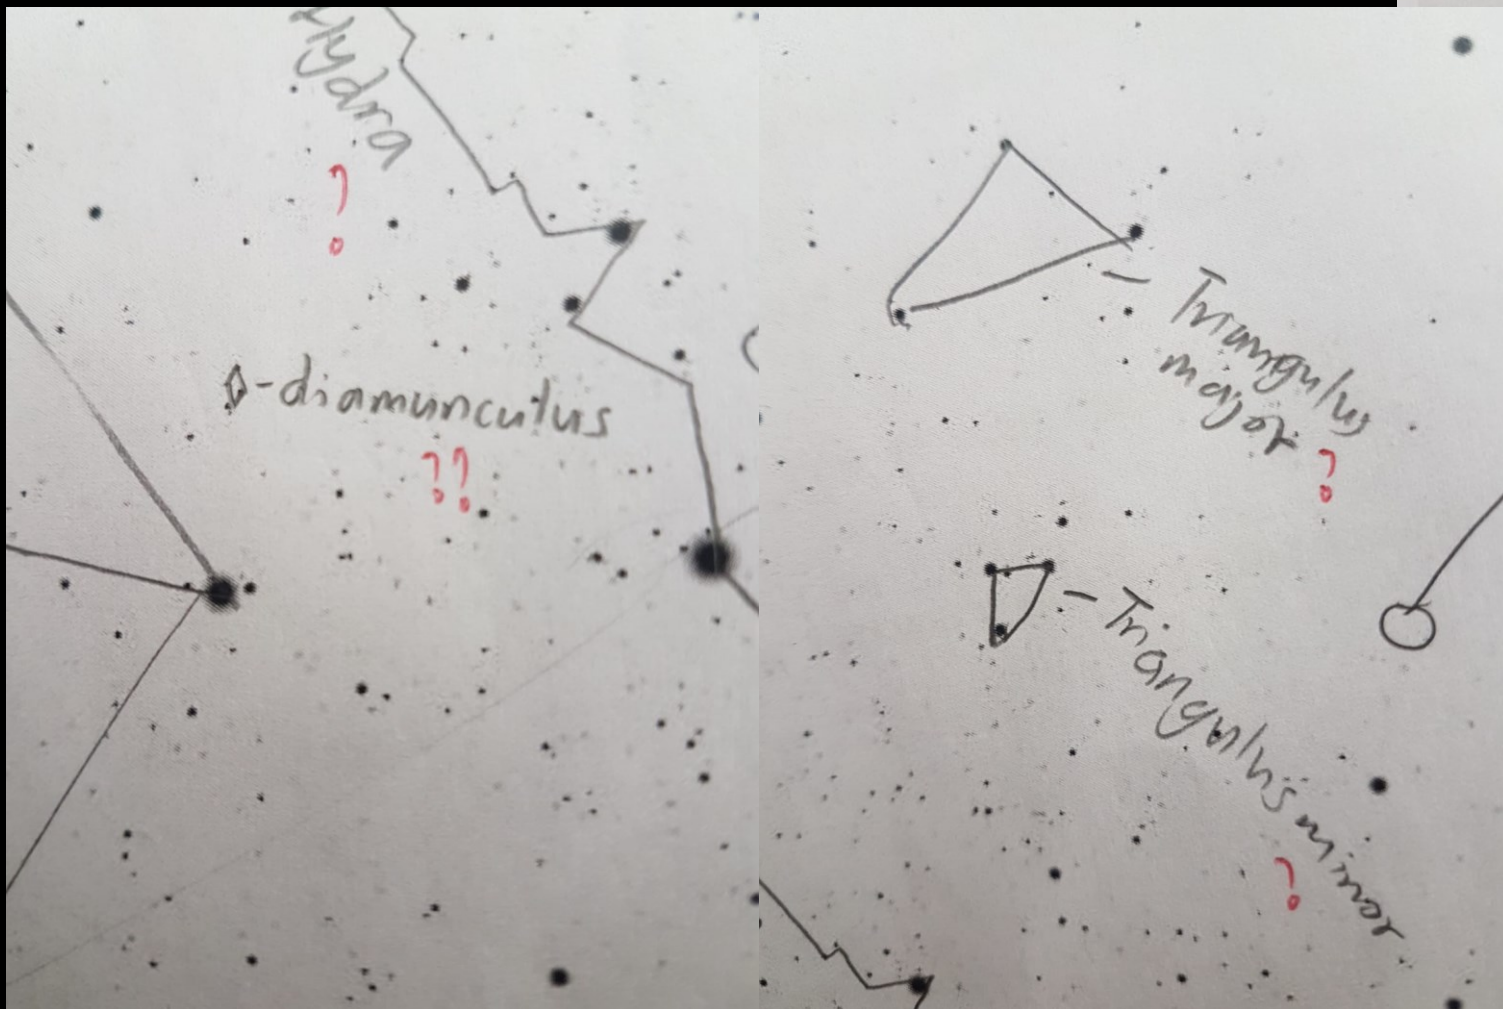 Hydra
?
◊-diamunculus
??
- Triangulus
major
?
- Triangulus minor
?